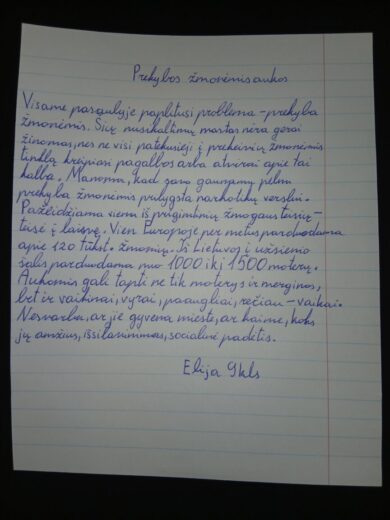 Prekybos žmonėmis aukos
Visame pasaulyje paplitusi problema - prekyba
žmonėmis. Šių nusikaltimų mastas nėra gerai
žinomas, nes ne visi patekusieji į prekeivių žmonėmis
tinklą kreipiasi pagalbos arba atvirai apie tai
kalba. Manoma, kad savo gaunamų pelnu
prekyba žmonėmis prilygsta narkotikų verslui.
Pažeidžiama viena iš prigimtinių žmogaus teisių -
teisė į laisvę. Vien Europoje per metus parduodama
apie 120 tūkst. žmonių. Iš Lietuvos į užsienio
šalis parduodama nuo 1000 iki 1500 moterų.
Aukomis gali tapti ne tik moterys ir merginos,
bet ir vaikinai, vyrai, paaugliai, rečiau - vaikai.
Nesvarbu, ar jie gyvena mieste, ar kaime, koks
jų amžius, išsilavinimas, socialinė padėtis.
Elija 9kls